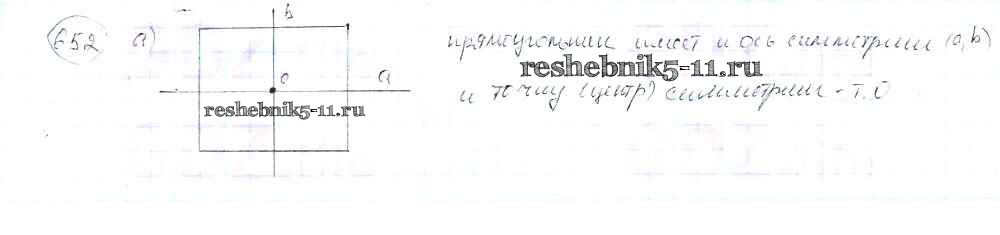 652 а)
b
о
а
reshebnik5-11.ru
прямоугольник имеет и ось симметрии (а, b)
reshebnik5-11.ru
и точку (центр) симметрии - т. О